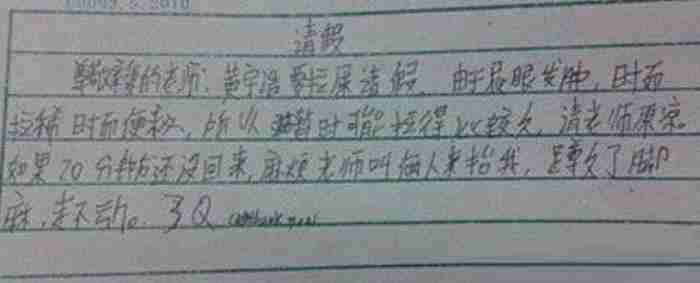 请假
尊敬的老师:黄宇浩要拉屎请假,由于屁眼发肿,时而
拉稀时而便秘,所以暂时可能拉得比较久,请老师原凉。
如果20分钟后还没回来,麻烦老师叫每人来抬我,蹲久了脚
麻,走不动。3Q